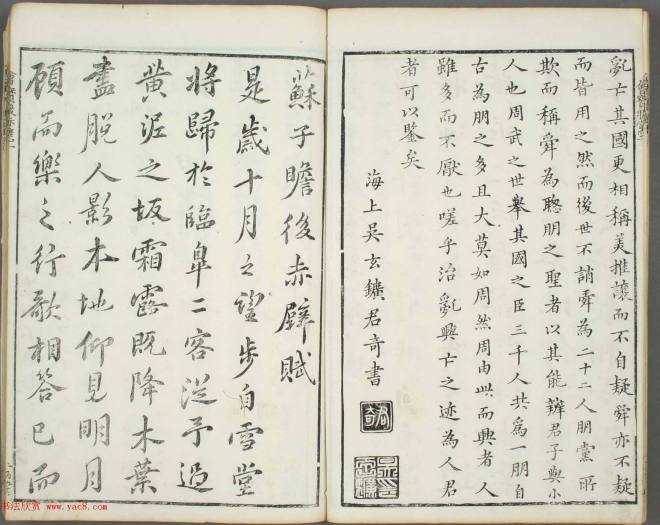 亂亡其國更相稱美推讓而不自疑舜亦不疑
而皆用之然而後世不誚舜為二十二人朋黨所
欺而稱舜為聰朋之聖者以其能辨君子與小
人也周武之世舉其國之臣三千人共為一朋自
古為朋之多且大莫如周然周由此而興者人
雖多而不厭也嗟乎治亂興亡之迹為人君
者可以鑒矣
海上吳玄鑛君奇書
君奇
蘇子瞻後赤壁賦
是歲十月之望步自雪堂
將歸於臨皐二客從予過
黃泥之坂霜露既降木葉
盡脫人影木地仰見明月
顧而樂之行歌相答已而
书法欣赏 www.yac8.com